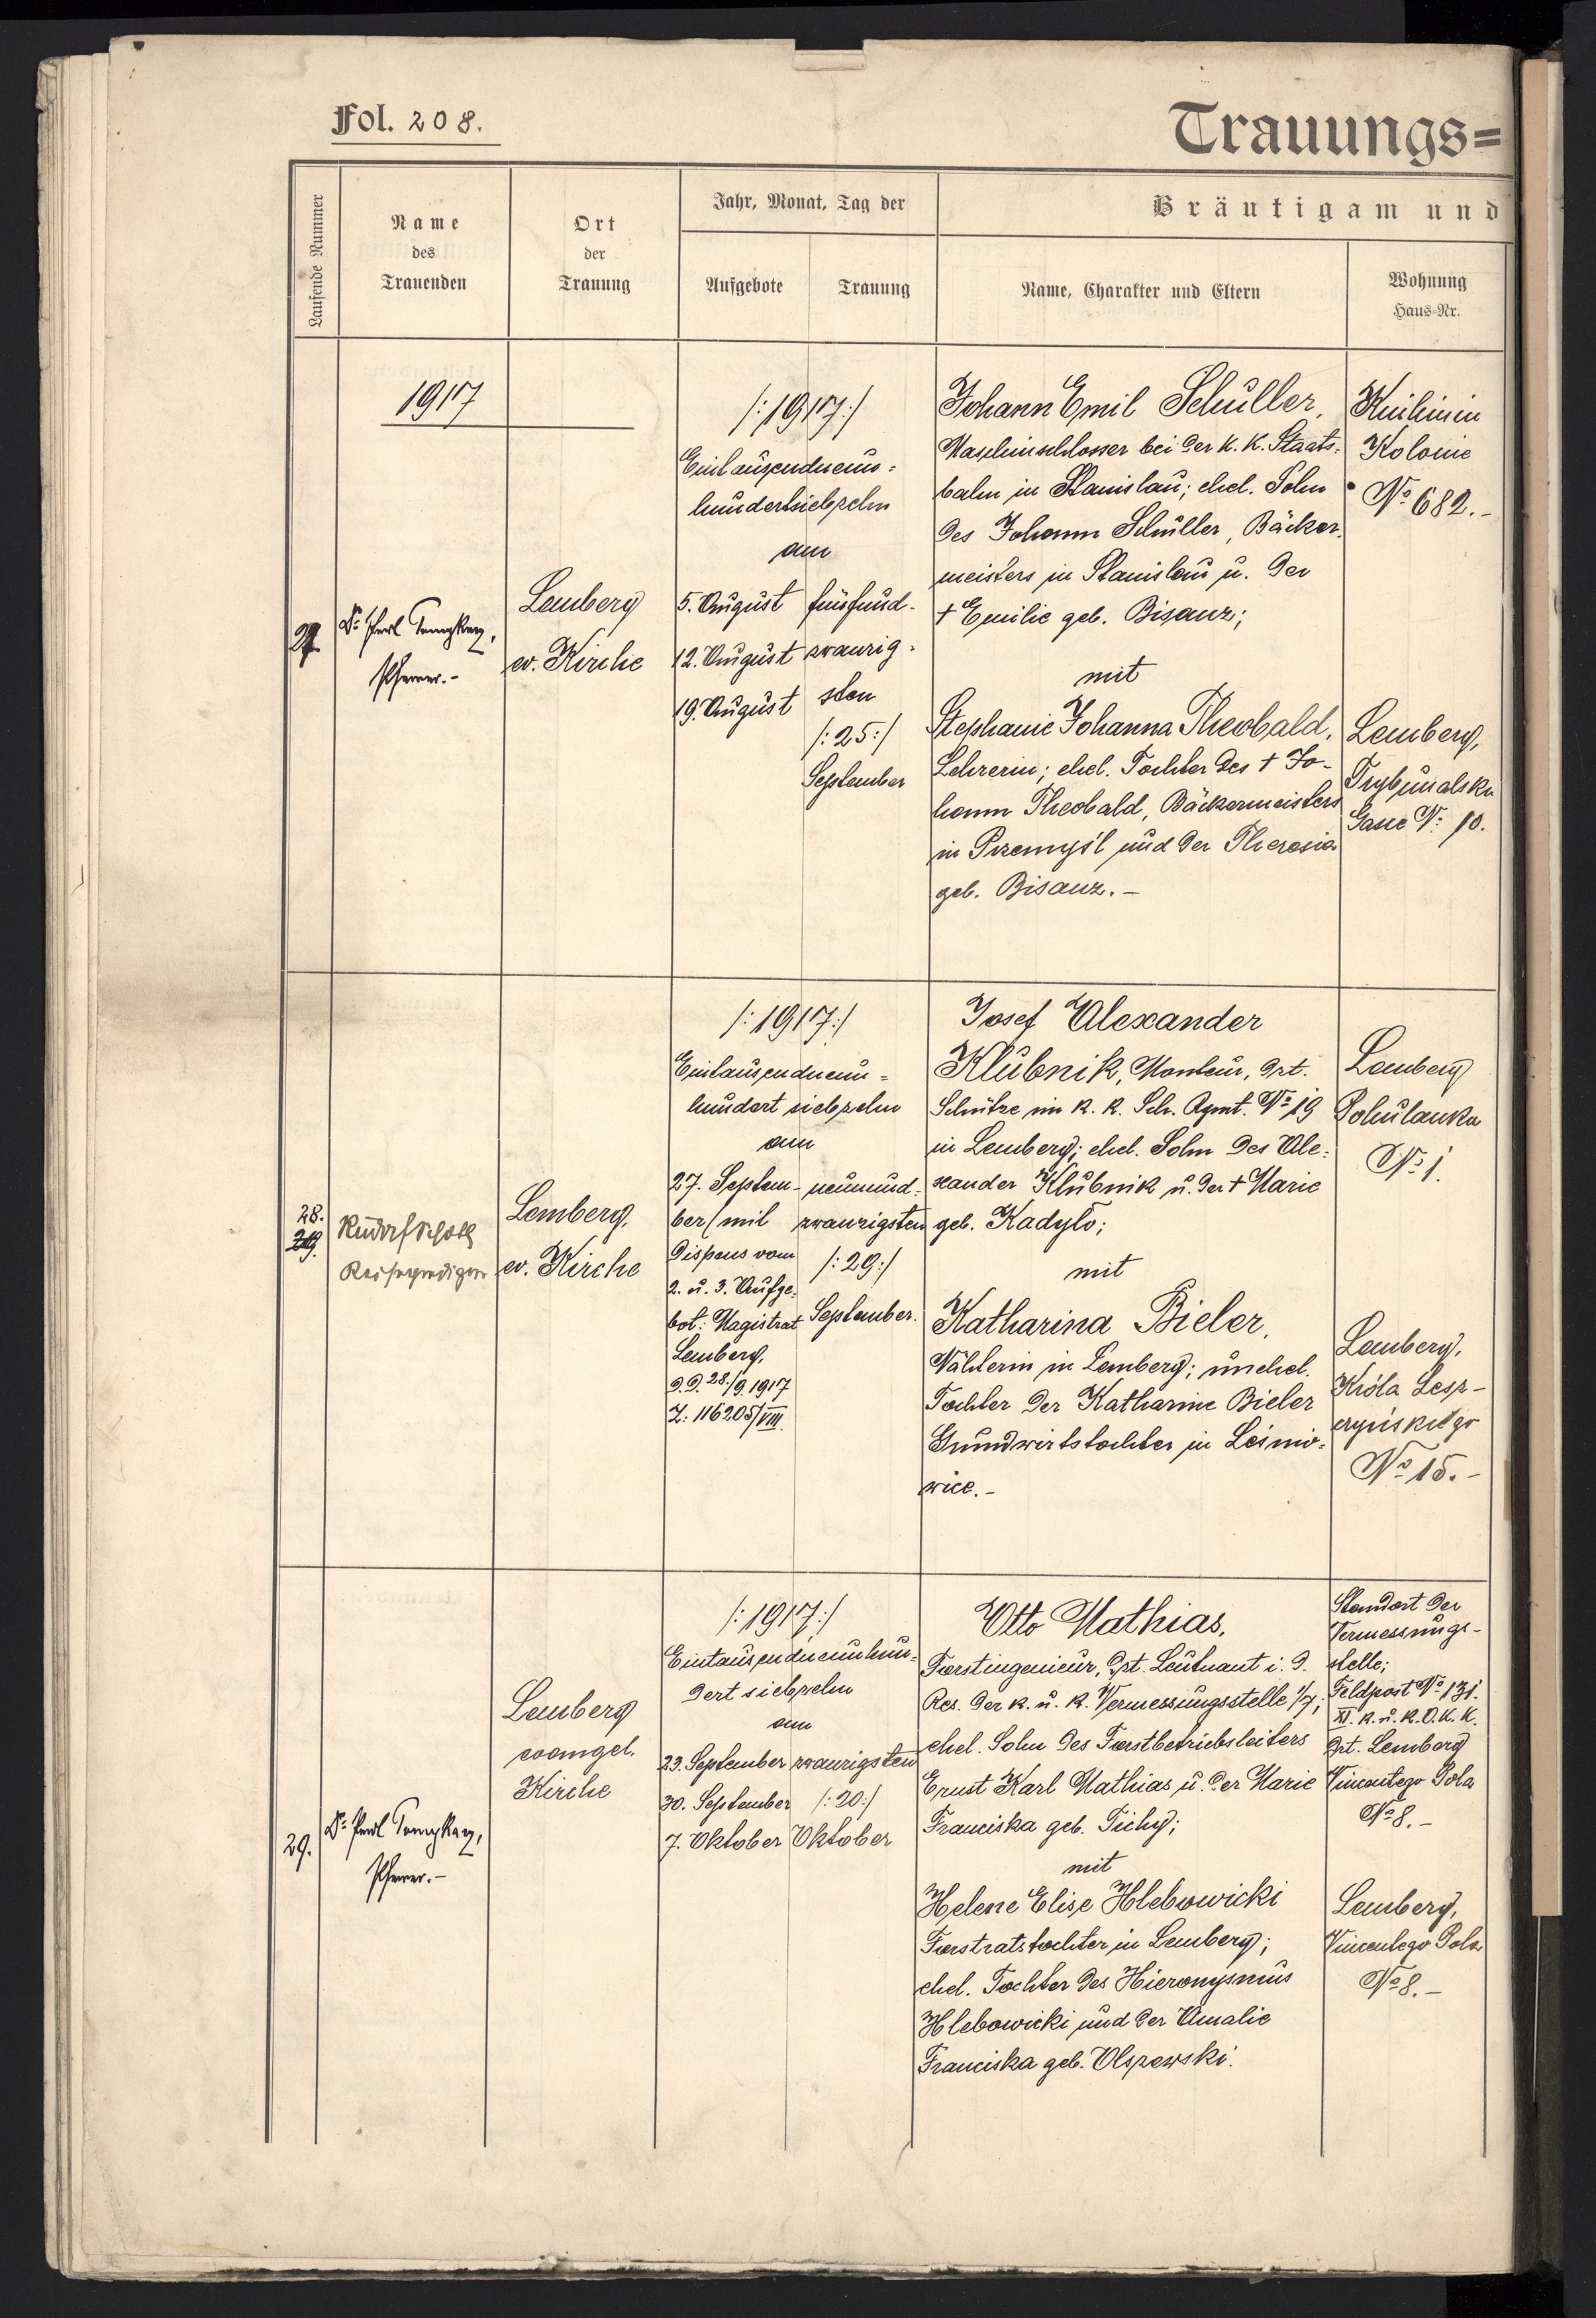 Fol. 208.
Trauungs=
Laufende Nummer
Name
des
Trauenden
Ort
der
Trauung
Jahr, Monat, Tag der
Aufgebote
Trauung
Bräutigam und
Name, Charakter und Eltern
Wohnung
Haus-Nr.
1917
27.
Pfarrer.-
Lemberg
ev. Kirche
/:1917:/
Eintausendneun=
hundertsiebzehn
am
5. August
12. August
19. August
fünfund-
zwanzig-
sten
/:25:/
September
Johann Emil Schüller,
Maschinschlosser bei der k. k. Staats=
bahn in Stanislau; ehel. Sohn
des Johann Schüller, Bäcker=
meisters in Stanislau u. der
† Emilie geb. Bisanz;
mit
Stephanie Johanna Theobald,
Lehrerin; ehel. Tochter des † Jo-
hann Theobald, Bäckermeisters
in Przemyśl und der Theresia
geb. Bisanz.-
Knihinin
Kolonie
No 682.-
Lemberg,
Trybunalska
Gasse No 10.
28.
Rudolf
Reiseprediger
Lemberg,
ev. Kirche
/:1917:/
Eintausendneun=
hundert siebzehn
am
27. Septem-
ber (mit
Dispens vom
2. u. 3. Aufge-
bot: Magistrat
Lemberg,
d. d. 28./9. 1917
Z: 116205/VIII.
neunund-
zwanzigsten
/:29:/
September.
Josef Alexander
Klubnik, Monteur, dzt.
Schütze im k. k. Sch. Rgmt. No 19
in Lemberg; ehel. Sohn des Ale=
xander Klubnik u. der † Marie
geb. Kadyło;
mit
Katharina Bieler,
Näherin in Lemberg; unehel.
Tochter der Katharine Bieler
Grundwirtstochter in Leśnio=
wice.-
Lemberg
Pohulanka
No 1.
Lemberg,
Króla Lesz-
czyńskiego
No 15.-
29.
Pfarrer.-
Lemberg
evangel.
Kirche
/:1917:/
Eintausendneunhun=
dert siebzehn
am
23. September
30. September
7. Oktober
zwanzigsten
/:20:/
Oktober
Otto Mathias,
Forstingenieur, dzt. Leutnant i. d.
Res. der k. u. k. Vermessungsstelle 1/7;
ehel. Sohn des Forstbetriebsleiters
Ernst Karl Mathias u. der Marie
Franciska geb. Tichy;
mit
Helene Elise Hlebowicki
Forstratstochter in Lemberg;
ehel. Tochter des Hieronymus
Hlebowicki und der Amalie
Franciska geb. Olszewski.
Standort der
Vermessungs-
stelle;
Feldpost No 131.
XI. k. u. k. O. K. K.
dzt. Lemberg
Vincentego Pola
No 8.-
Lemberg,
Vincentego Pola
No 8.-